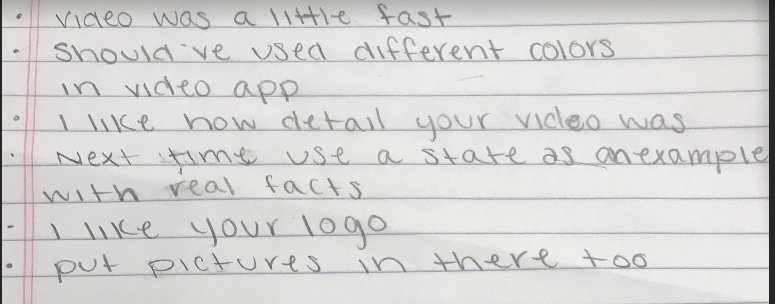 • video was a little fast
• should've used different colors
in video app
• I like how detail your video was
• Next time use a state as an example
with real facts
- I like your logo
• put pictures in there too